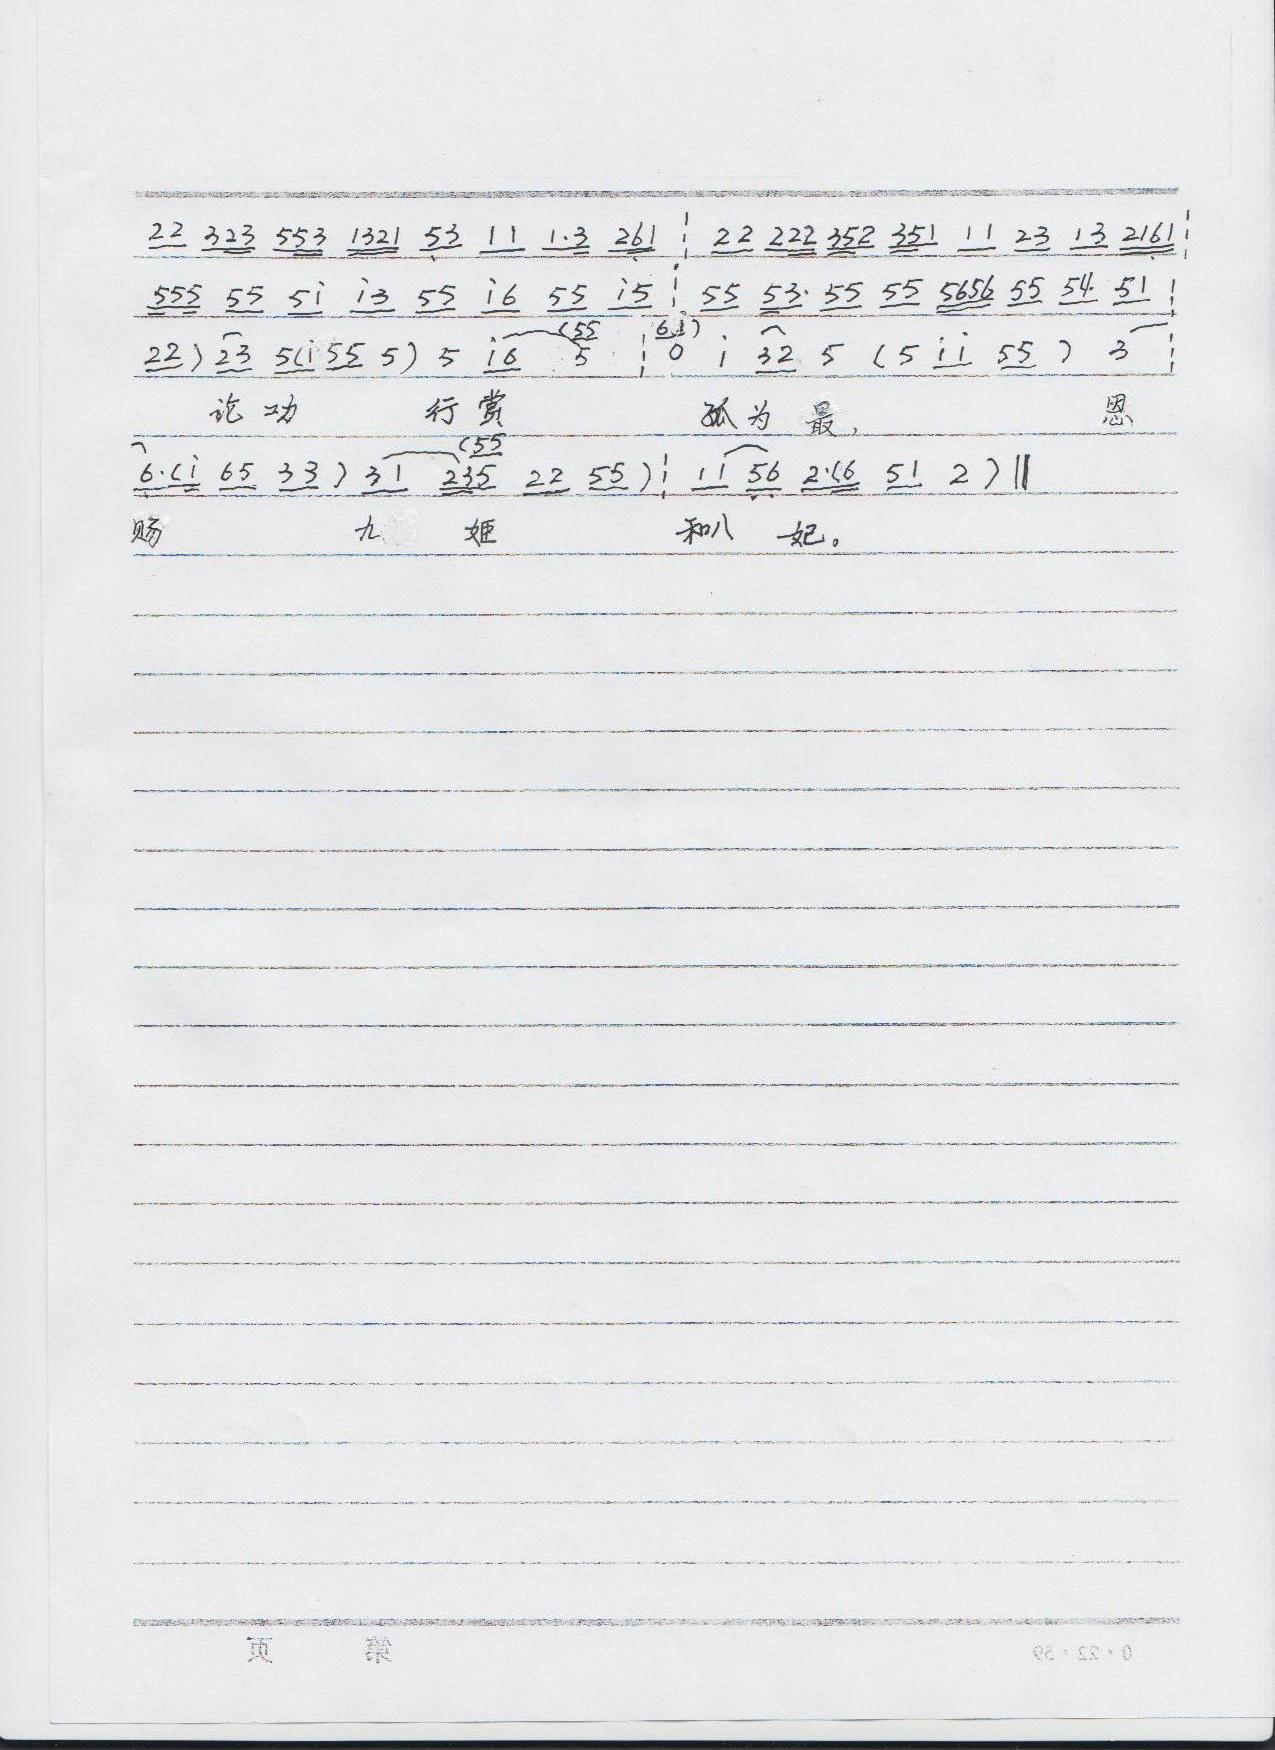 22 323 553 1321 53 11 1·3 261 ¦ 22 222 352 351 11 23 13 2161 ¦
555 55 5i i3 55 i6 55 i5 ¦ 55 53· 55 55 5656 55 54· 51 ¦
(55 61)
22) 23 5(i 55 5) 5 i6 5 ¦ 0 i 32 5 (5 ii 55 ) 3 ¦
论功 行赏 孤为最, 恩
(55
6·(i 65 33) 31 235 22 55) ¦ 11 56 2·(6 51 2) ‖
赐 九 姬 和八 妃。
第 页
0·22·59